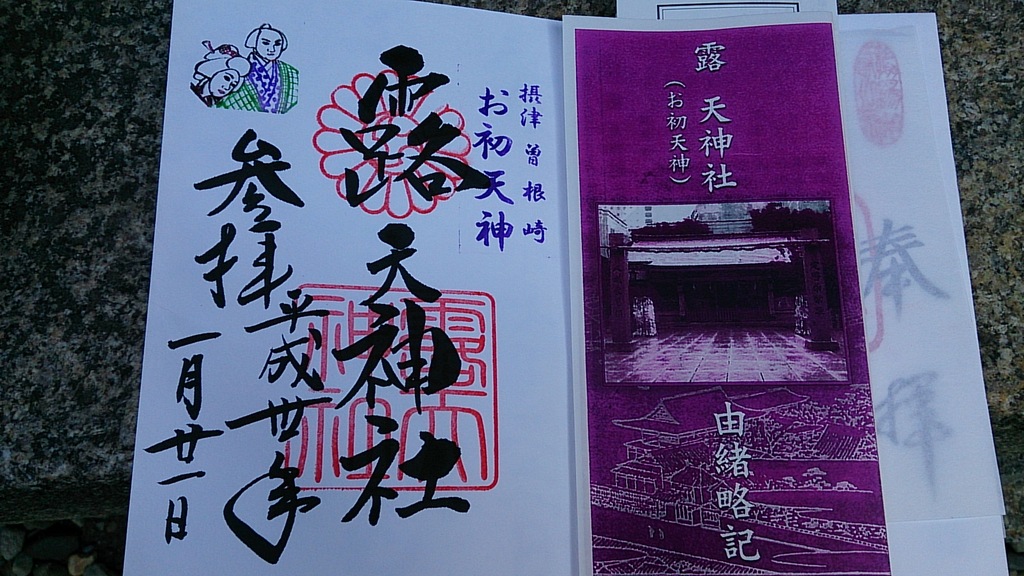 奉拝
露 天神社
(お初天神)
由緒略記
摂津 曽根崎
お初天神
露天神社
露天
神社
参拝
平成丗年
一月廿一日